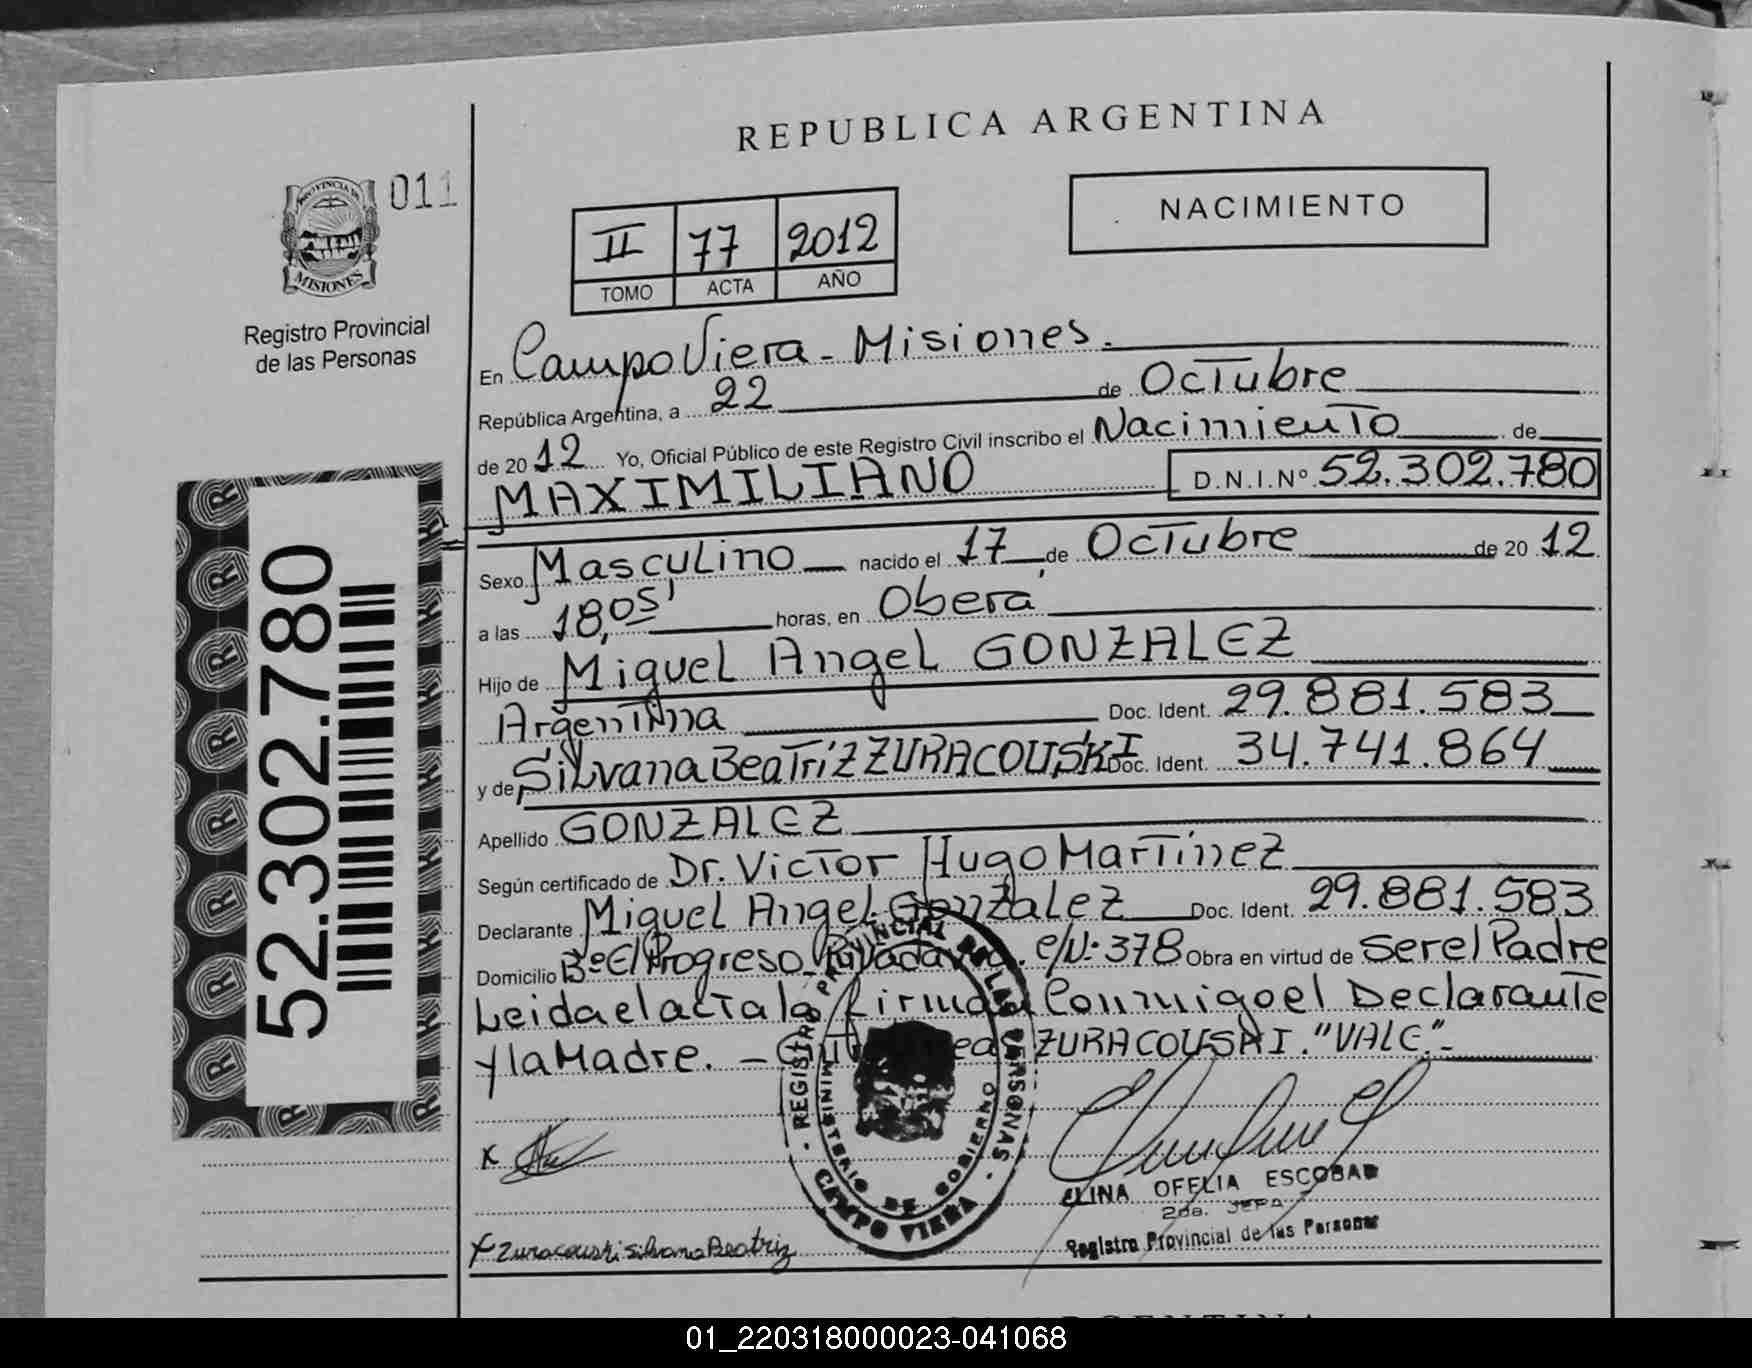 REPUBLICA ARGENTINA
011
NACIMIENTO
II 77 2012
TOMO ACTA AÑO
PROVINCIA DE MISIONES
Registro Provincial
de las Personas
En Campo Viera - Misiones.
República Argentina, a 22 de Octubre
de 20 12 Yo, Oficial Público de este Registro Civil inscribo el Nacimiento de
MAXIMILIANO D.N.I.Nº 52.302.780
Sexo Masculino nacido el 17 de Octubre de 20 12
a las 18,05' horas, en Oberá
Hijo de Miguel Angel GONZALEZ
Argentina Doc. Ident. 29.881.583
y de Silvana Beatriz ZURACOUSKI Doc. Ident. 34.741.864
Apellido GONZALEZ
Según certificado de Dr. Victor Hugo Martinez
Declarante Miguel Angel Gonzalez Doc. Ident. 29.881.583
Domicilio Bº El Progreso Rivadavia. e/Nº 378 Obra en virtud de Ser el Padre
Leida el acta la firma Conmigo el Declarante
y la Madre. - ZURACOUSKI. "VALE".-
52.302.780
REGISTRO PROVINCIAL DE LAS PERSONAS
MINISTERIO DE GOBIERNO
CAMPO VIERA
x
ELINA OFELIA ESCOBAR
2da. JEFA
Registro Provincial de las Personas
x Zuracouski Silvana Beatriz
01_220318000023-041068